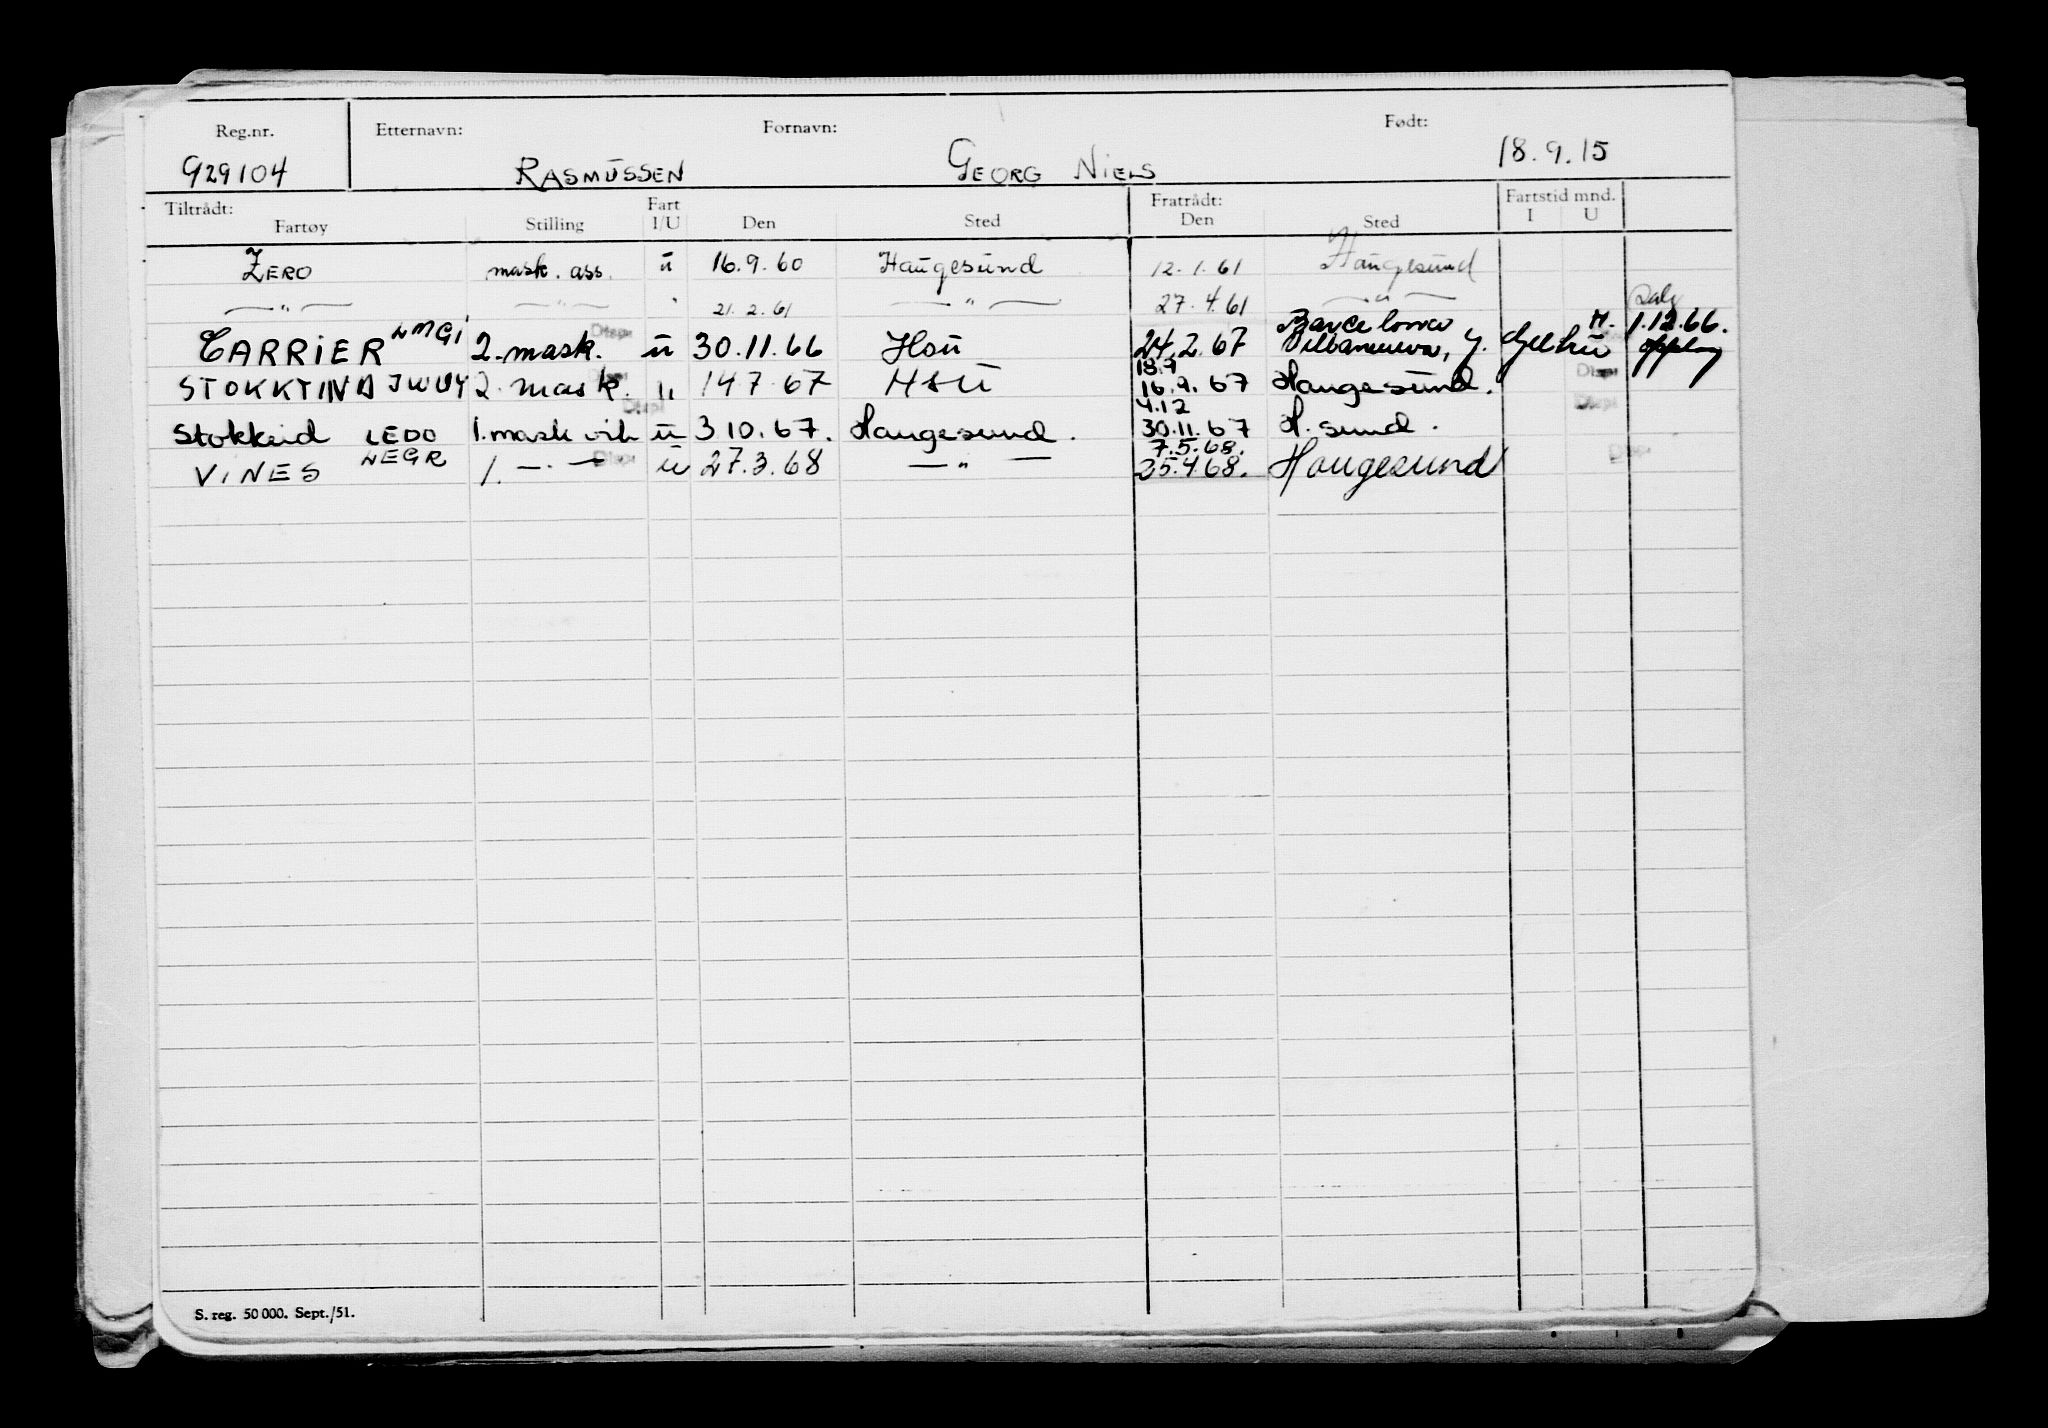 Reg.nr. Etternavn: Fornavn: Født:
G29104 RASMUSSEN GEORG NIELS 18.9.15
Tiltrådt: Fart Fratrådt: Fartstid mnd.
Fartøy Stilling I/U Den Sted Den Sted I U
ZERO mask. ass. u 16.9.60 Haugesund 12.1.61 Haugesund
—"— —"— " 21.2.61 —"— 27.4.61 —"—
CARRIER LMGI 2. mask. u 30.11.66 Hsu 24.2.67 Barcelona H. 1.12.66.
STOKKTIND JWUY 2. mask. u 14 7 67 HSU 18.7 16.9.67 Haugesund.
Stokkeid LEDO 1. mask vik u 3 10.67. Haugesund. 4.12 30.11.67 H. sund.
VINES LEGR 1. —"— u 27.3.68 —"— 7.5.68. 25.4.68. Haugesund
S. reg. 50 000. Sept./51.